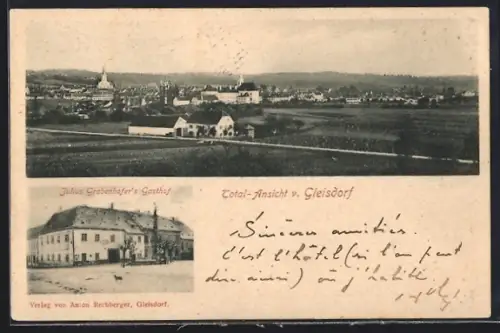 Julius Grabenhofer's Gasthof
Total-Ansicht v. Gleisdorf
Sincères amitiés.
C'est l'hôtel (si l'on peut
dire ainsi) où j'habite
Verlag von Anton Rothberger, Gleisdorf.